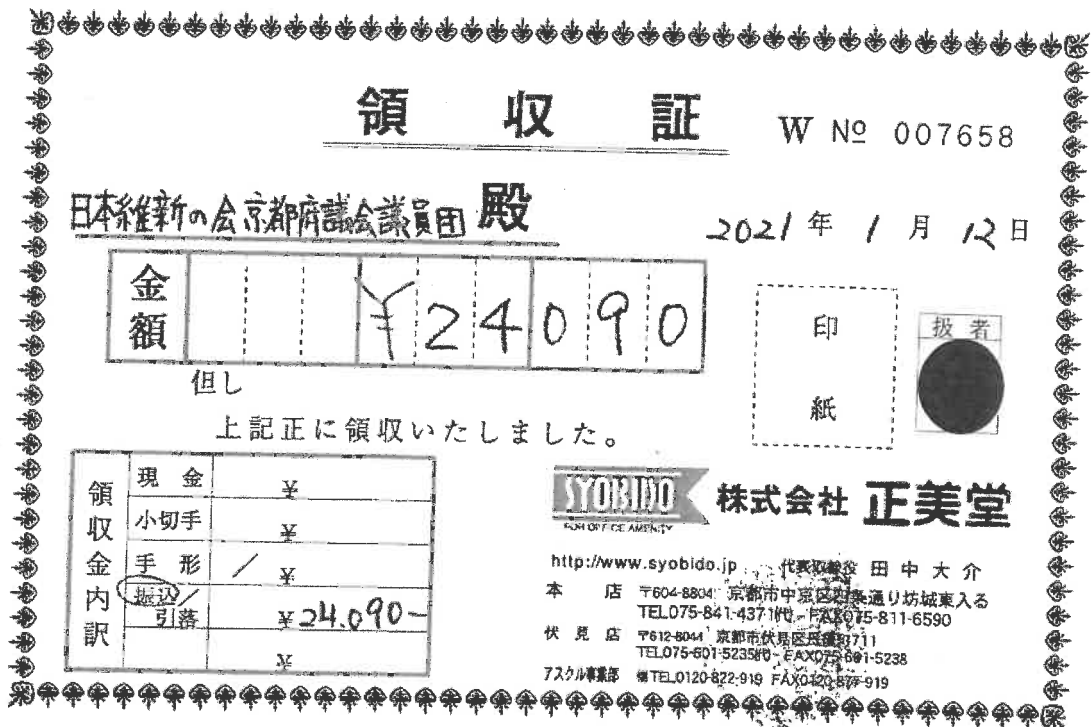 領収証
W № 007658
日本維新の会京都府議会議員団 殿
2021年1月12日
金額 ¥24090
印紙
扱者
但し
上記正に領収いたしました。
領収金内訳
現金 ¥
小切手 ¥
手形 / ¥
振込/引落 ¥24.090-
¥
SYOBIDO
FOR OFFICE AMENITY
株式会社 正美堂
http://www.syobido.jp 代表取締役 田中大介
本店 〒604-8804 京都市中京区 条通り坊城東入る
TEL075-841-4371㈹ FAX075-811-6590
伏見店 〒612-8044 京都市伏見区 711
TEL075-601-5235㈹ FAX075-601-5238
アスクル事業部 TEL0120-822-919 FAX0120-877-919